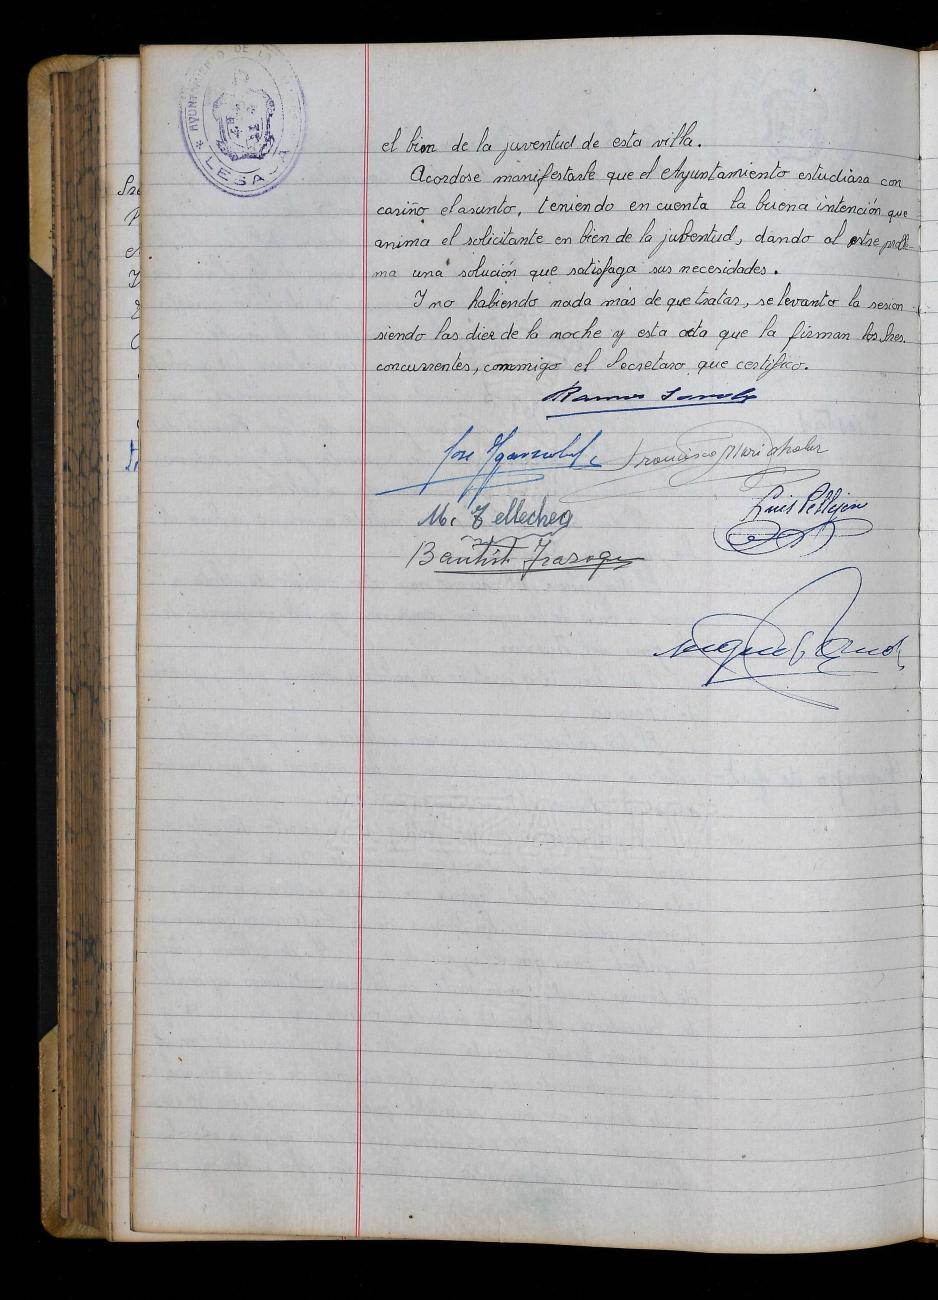 AYUNTAMIENTO DE LA
LESACA
el bien de la juventud de esta villa.
Acordose manifestarle que el Ayuntamiento estudiara con
cariño el asunto, teniendo en cuenta la buena intención que
anima el solicitante en bien de la jubentud, dando al este proble-
ma una solución que satisfaga sus necesidades.
Y no habiendo nada más de que tratar, se levanto la sesion
siendo las diez de la noche y esta acta que la firman los Sres.
concurrentes, conmigo el Secretaro que certifico.
Ramon
Jose Francisco
M. Tellechea Luis Pellejero
Bautista
Miguel